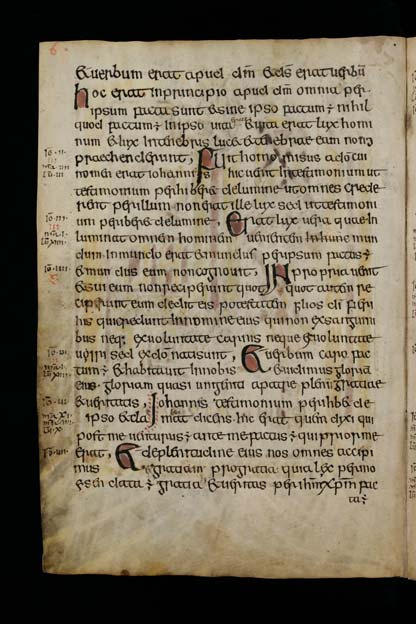 6
& uerbum erat apud dm & ds erat uerbu
hoc erat inprincipio apud dm omnia per
ipsum facta sunt & sine ipso factum ÷ nihil
quod factum ÷ Inipso uita & uita erat lux homi
num & lux Intenebris luc& & tenebrae eam non
praechenderunt, Fuit homo misus adō cui
nomen erat iohannis hic uenit Intestimonium ut
testimonium perhiber& delumine ut omnes crede
rent per illum non erat ille lux sed ut testimoni
um perhiber& delumine, Erat lux uera quae In
luminat omnem hominem uenientem Inhunc mun
dum Inmundo erat & mundus peripsum factus ÷
& mundus eum non cognouit, In propria uenit
& sui eum non reciperunt quot quot autem re
ciperunt eum dedit eis potestatem filios di fieri
his qui credunt Innomine eius qui non exsanguini
bus neq; exuoluntate carnis neque & uoluntate
uiri sed exdo nati sunt, & uerbum caro fac
tum ÷ & habitauit Innobis & uidimus gloria
eius gloriam quasi unigeniti apatre plenū gratiae
& ueritatis, Iohannis testimonium perhib& de
ipso & clamat dicens hic erat quem dixi qui
post me uenturus ÷ ante me factus ÷ qui prior me
erat, & deplenitudine eius nos omnes accipi
mus & gratiam pro gratia quia lex per mo
ysen data ÷ gratia & ueritas per ihm xpm fac
ta ÷